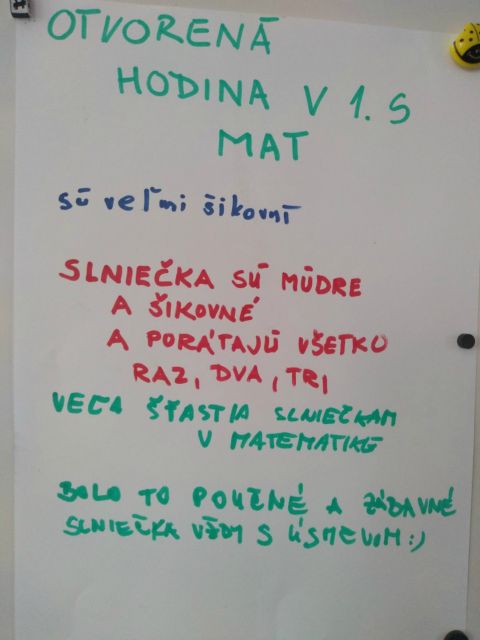 OTVORENÁ
HODINA V 1. S
MAT
sú veľmi šikovní
SLNIEČKA SÚ MÚDRE
A ŠIKOVNÉ
A PORÁTAJÚ VŠETKO
RAZ, DVA, TRI
VEĽA ŠŤASTIA SLNIEČKAM
V MATEMATIKE
BOLO TO POUČNÉ A ZÁBAVNÉ
SLNIEČKA VŽDY S ÚSMEVOM :)